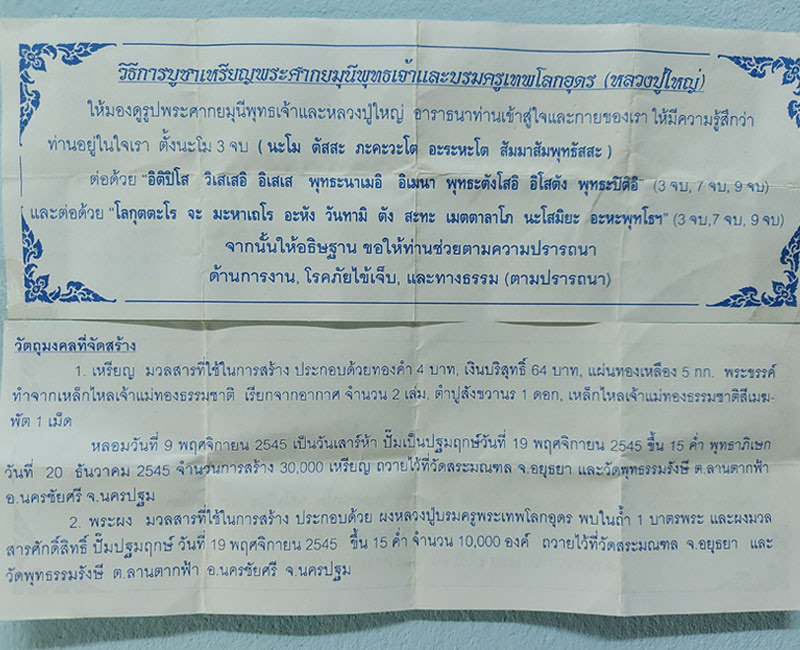 วิธีการบูชาเหรียญพระศากยมุนีพุทธเจ้าและบรมครูเทพโลกอุดร (หลวงปู่ใหญ่)
ให้มองดูรูปพระศากยมุนีพุทธเจ้าและหลวงปู่ใหญ่ อาราธนาท่านเข้าสู่ใจและกายของเรา ให้มีความรู้สึกว่า
ท่านอยู่ในใจเรา ตั้งนะโม 3 จบ (นะโม ตัสสะ ภะคะวะโต อะระหะโต สัมมาสัมพุทธัสสะ)
ต่อด้วย “อิติปิโส วิเสเสอิ อิเสเส พุทธะนาเมอิ อิเมนา พุทธะตังโสอิ อิโสตัง พุทธะปิติอิ” (3 จบ, 7 จบ, 9 จบ)
และต่อด้วย “โลกุตตะโร จะ มะหาเถโร อะหัง วันทามิ ตัง สะทะ เมตตาลาโภ นะโสมิยะ อะหะพุทโธฯ” (3 จบ,7 จบ, 9 จบ)
จากนั้นให้อธิษฐาน ขอให้ท่านช่วยตามความปรารถนา
ด้านการงาน, โรคภัยไข้เจ็บ, และทางธรรม (ตามปรารถนา)
วัตถุมงคลที่จัดสร้าง
1. เหรียญ มวลสารที่ใช้ในการสร้าง ประกอบด้วยทองคำ 4 บาท, เงินบริสุทธิ์ 64 บาท, แผ่นทองเหลือง 5 กก. พระขรรค์
ทำจากเหล็กไหลเจ้าแม่ทองธรรมชาติ เรียกจากอากาศ จำนวน 2 เล่ม, ตำปูสังขวานร 1 ดอก, เหล็กไหลเจ้าแม่ทองธรรมชาติสีเมฆ-
พัต 1 เม็ด
หลอมวันที่ 9 พฤศจิกายน 2545 เป็นวันเสาร์ห้า ปั๊มเป็นปฐมฤกษ์วันที่ 19 พฤศจิกายน 2545 ขึ้น 15 ค่ำ พุทธาภิเษก
วันที่ 20 ธันวาคม 2545 จำนวนการสร้าง 30,000 เหรียญ ถวายไว้ที่วัดสระมณฑล จ.อยุธยา และวัดพุทธธรรมรังษี ต.ลานตากฟ้า
อ.นครชัยศรี จ.นครปฐม
2. พระผง มวลสารที่ใช้ในการสร้าง ประกอบด้วย ผงหลวงปู่บรมครูพระเทพโลกอุดร พบในถ้ำ 1 บาตรพระ และผงมวล
สารศักดิ์สิทธิ์ ปั๊มปฐมฤกษ์ วันที่ 19 พฤศจิกายน 2545 ขึ้น 15 ค่ำ จำนวน 10,000 องค์ ถวายไว้ที่วัดสระมณฑล จ.อยุธยา และ
วัดพุทธธรรมรังษี ต.ลานตากฟ้า อ.นครชัยศรี จ.นครปฐม